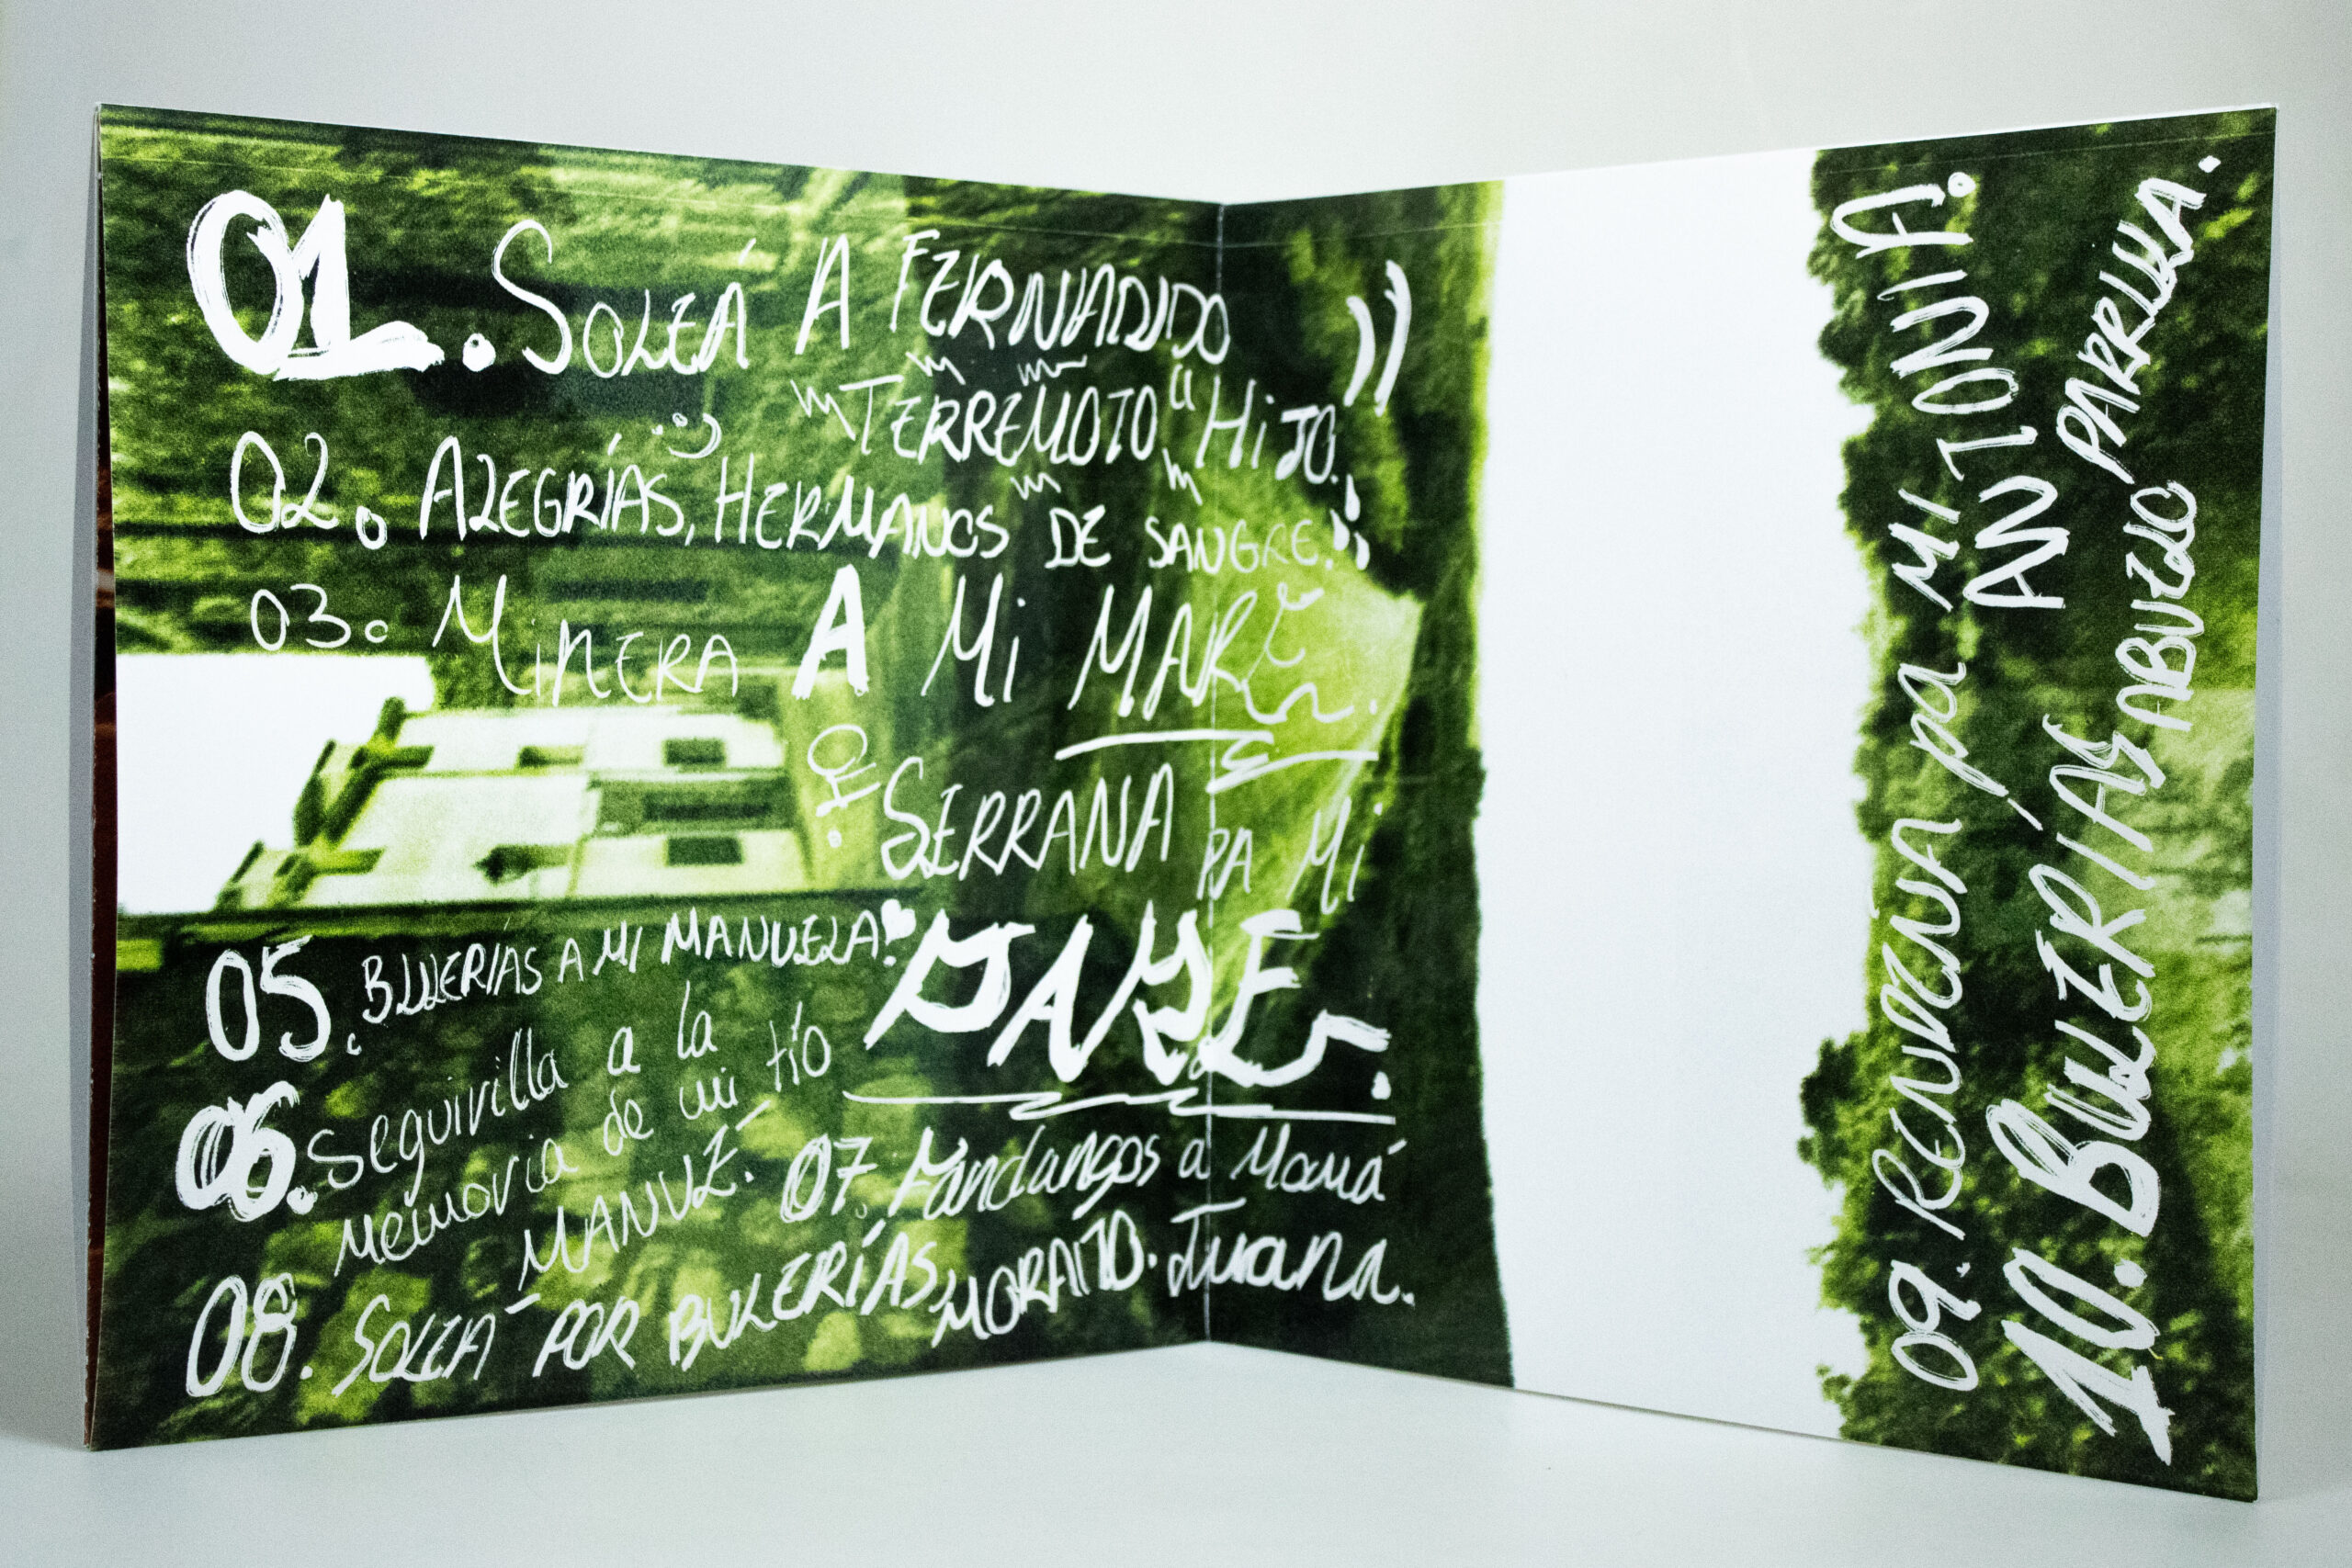 01. SOLEÁ A FERNANDO
"TERREMOTO" HIJO.
02. ALEGRÍAS, HERMANOS DE SANGRE.
03. MINERA A MI MARÉ.
04. SERRANA PA MI
05. BULERÍAS A MI MANUELA!
06. Seguirilla a la
memoria de mi tío
MANUÉ.
07. Fandangos a Mamá
Juana.
08. SOLEÁ POR BULERÍAS, MORAÍTO.
09. RONDEÑA pa MI
ANTONIA.
10. BULERÍAS ABUELO PARRILLA.